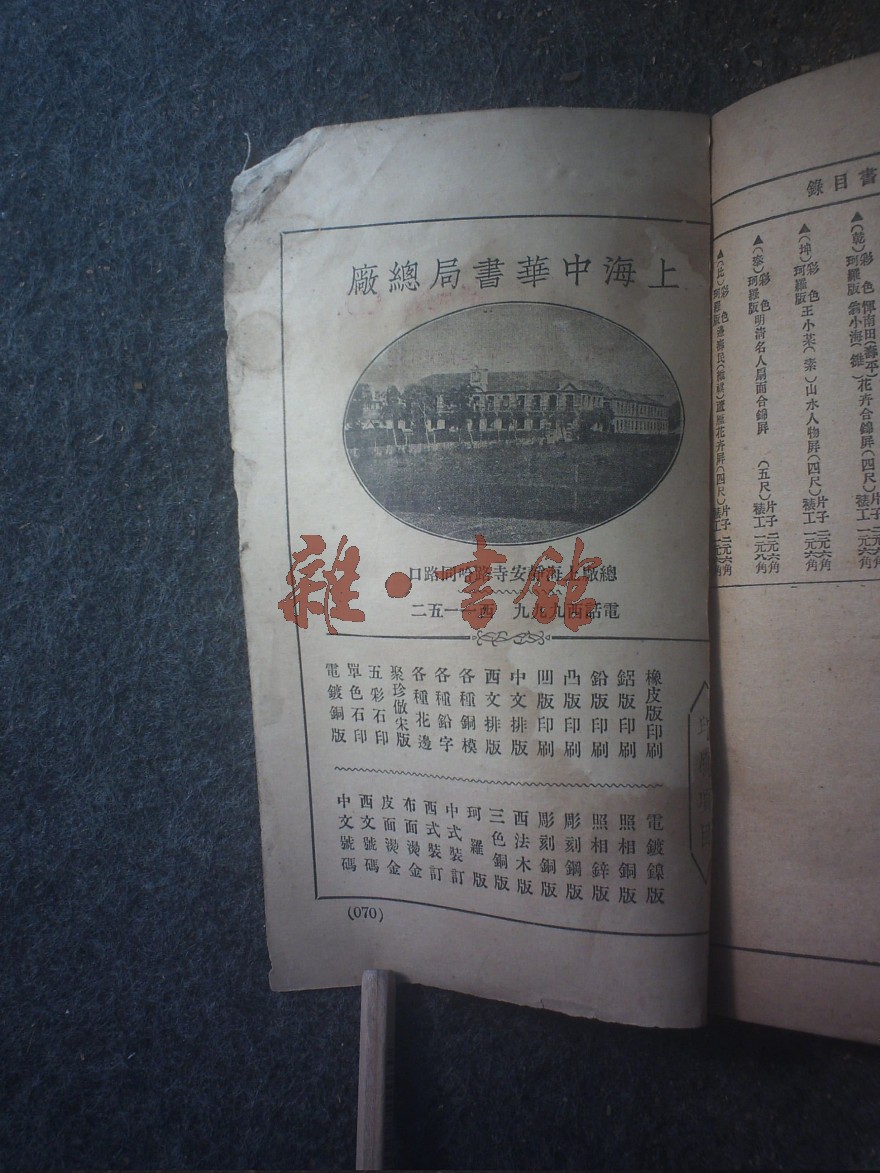 上海中華書局總廠
總廠上海靜安寺路哈同路口
電話西九九九 西一一五二
橡皮版印刷
鋁版印刷
鉛版印刷
凸版印刷
凹版印刷
中文排版
西文排版
各種銅模
各種鉛字
各種花邊
聚珍倣宋版
五彩石印
單色石印
電鍍銅版
電鍍鎳版
照相銅版
照相鋅版
彫刻鋼版
彫刻銅版
西法木版
三色銅版
珂羅版
中式裝訂
西式裝訂
布面燙金
皮面燙金
西文號碼
中文號碼
(070)
書目錄
▲(乾)彩色珂羅版 惲南田(壽平)花卉合錦屏(四尺)片子
▲(坤)彩色珂羅版王小某(素)山水人物屏(四尺)片子二元六角 裱工一元六角
▲(泰)彩色珂羅版明清名人扇面合錦屏 (五尺)片子二元六角 裱工一元八角
雜·書館